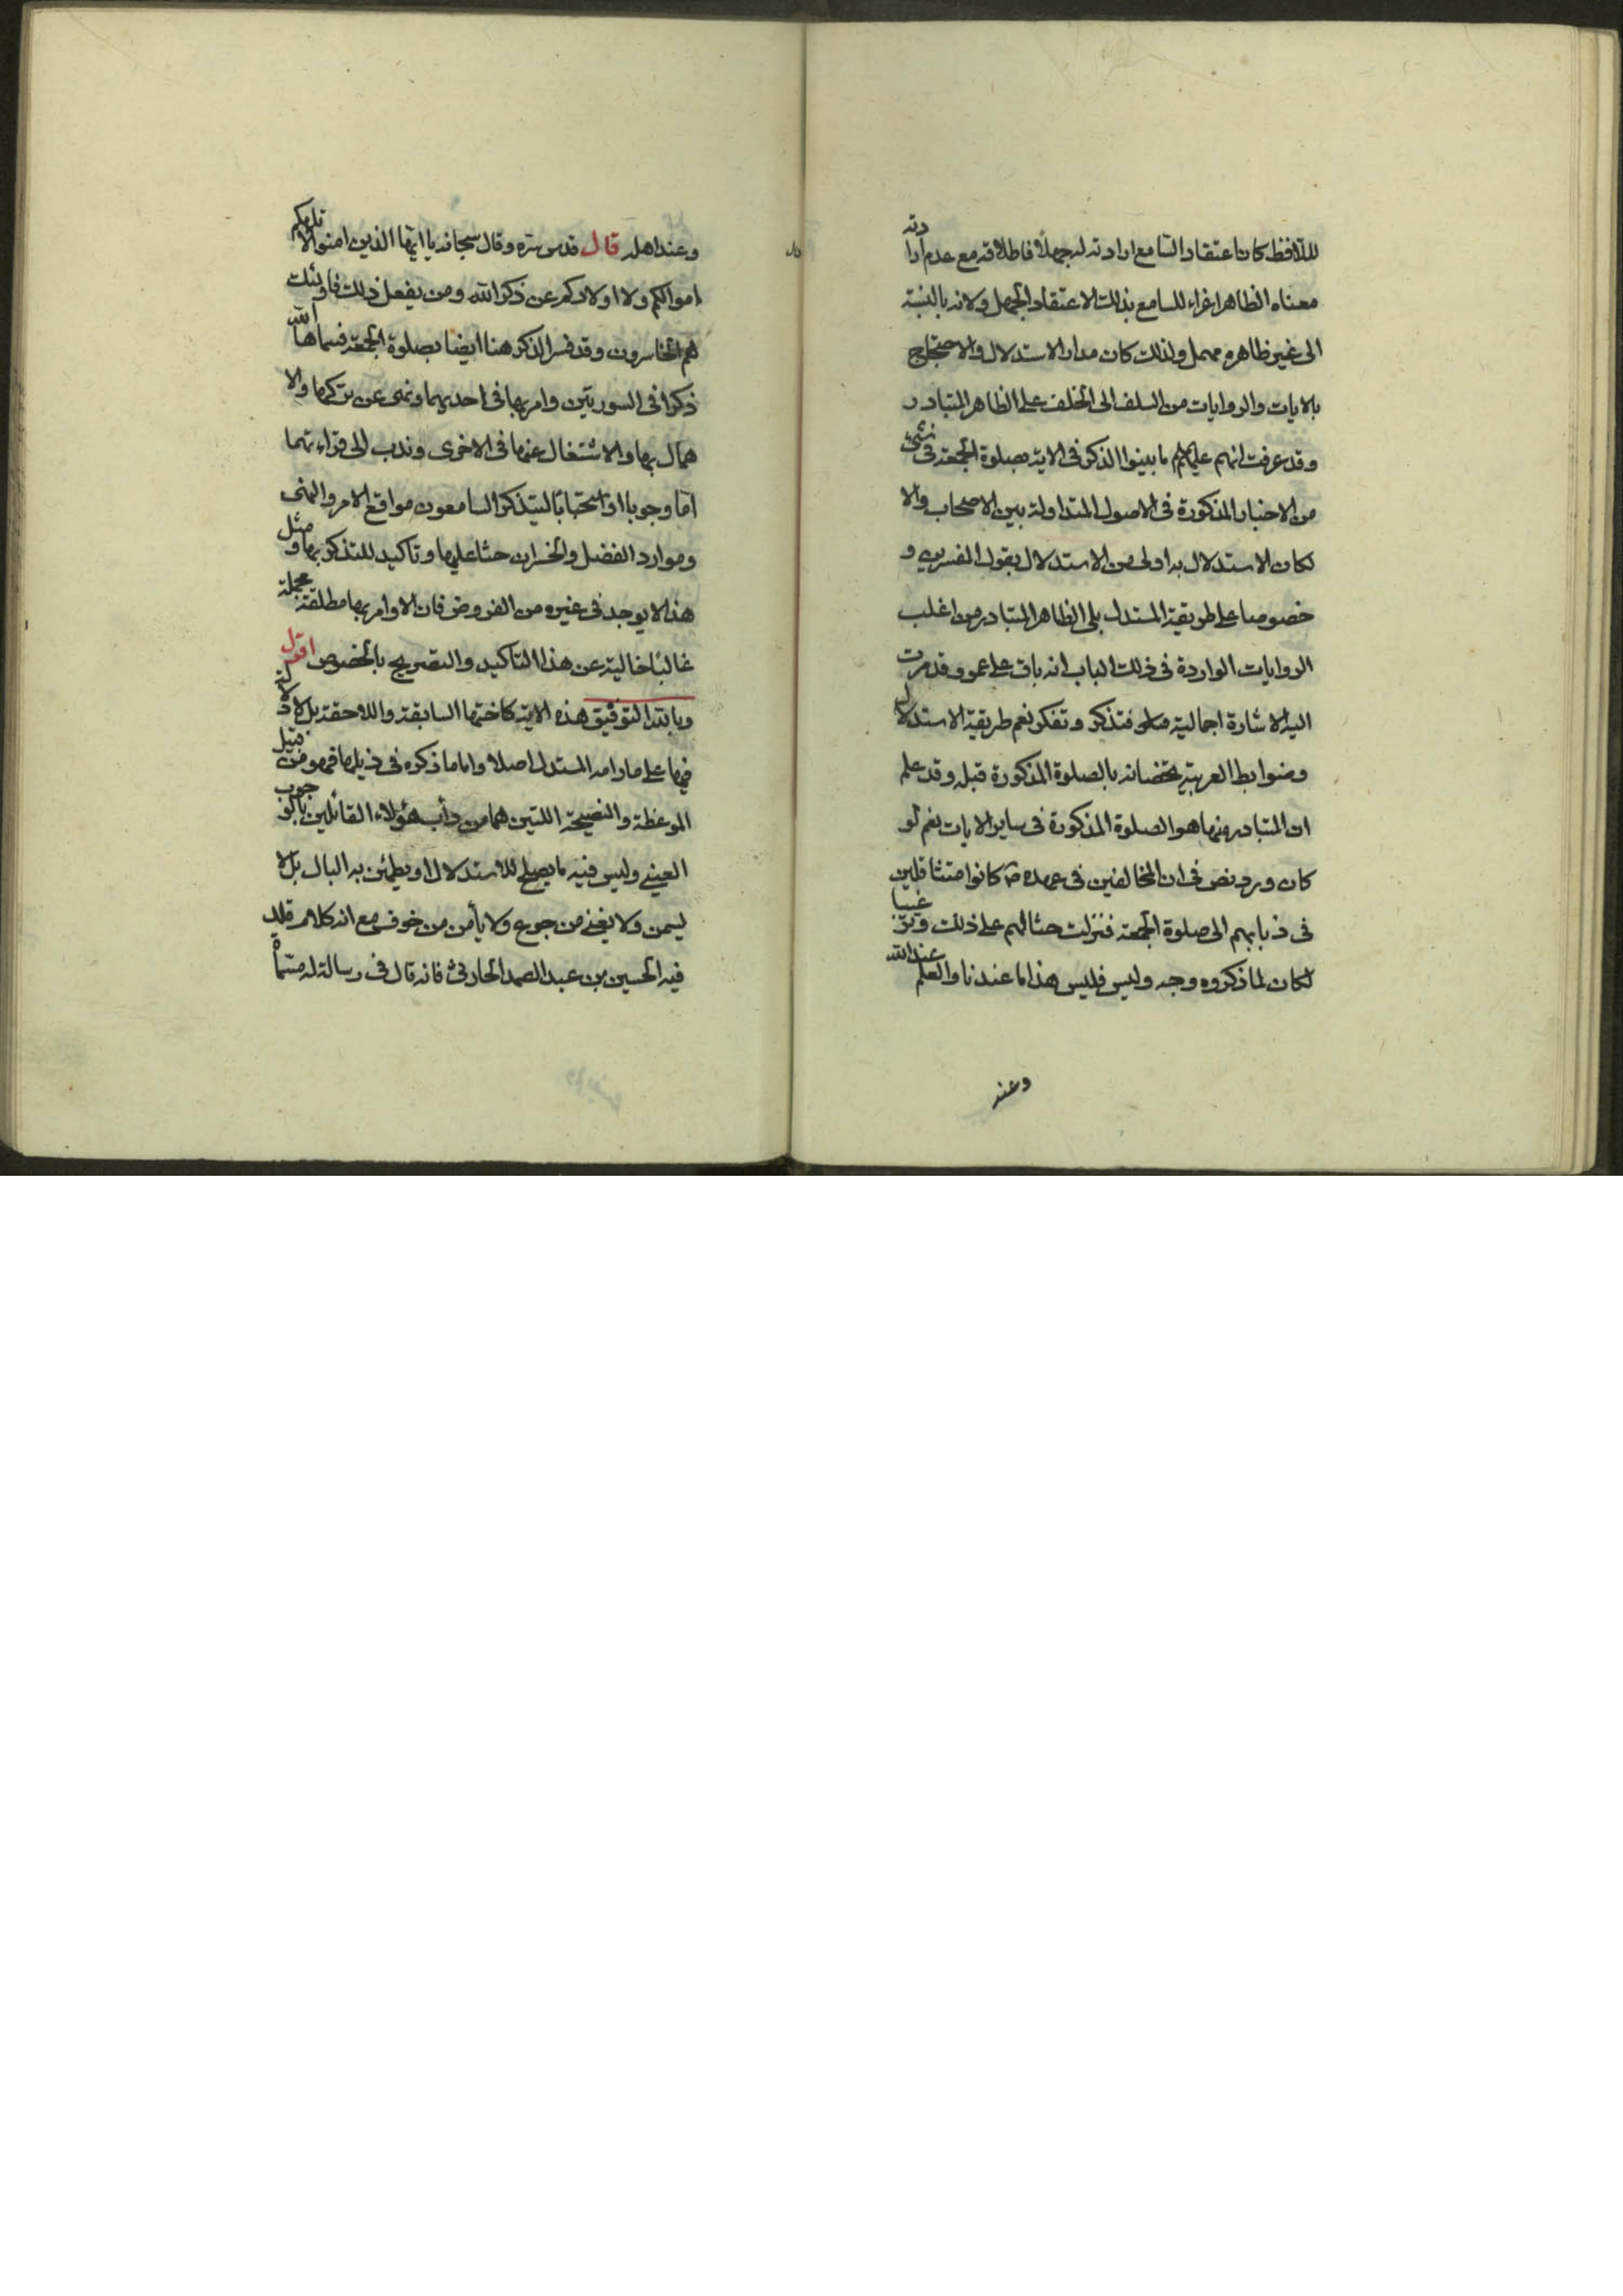 للافظ كان اعتقاد السامع ارادته له جهلا فاطلاقه مع عدم ارادته
معناه الظاهر اغراء للسامع بذلك الاعتقاد الجهل ولانه بالنسبة
الى غير ظاهره مهمل ولذلك كان مدار الاستدلال والاحتجاج
بالايات والروايات من السلف الى الخلف على الظاهر المتبادر
وقد عرفت انهم عليهم ما بينوا الذكر فى الاية بصلوة الجمعة فى شىء
من الاخبار المذكورة فى الاصول المتداولة بين الاصحاب والا
لكان الاستدلال به اولى من الاستدلال بقول المفسرين و
خصوصا على طريقة المستدل بلى الظاهر المتبادر من اغلب
الروايات الواردة فى ذلك الباب انه باق على عمو وقد مرت
اليه الاشارة اجمالية فتذكر وتفكر نعم طريقة الاستدلال
وضوابط العربية تخصانه بالصلوة المذكورة قبله وقد علم
ان المتبادر منها هو الصلوة المذكورة فى ساير الايات نعم لو
كان ورد نص فى ان المخالفين فى عهده ص كانوا متثاقلين
فى ذهابهم الى صلوة الجمعة فنزلت حثا لهم على ذلك وترغيبا
لكان لما ذكروه وجه وليس فليس هذا ما عندنا والعلم عند الله
وعند
وعند اهله قال قدس سره وقال سبحانه يا ايها الذين امنوا لا تلهكم
اموالكم ولا اولادكم عن ذكر الله ومن يفعل ذلك فاولئك
هم الخاسرون وقد فسر الذكر هنا ايضا بصلوة الجمعة فسماها الله
ذكرا فى السورتين وامر بها فى احديهما ونهى عن تركها والا
همال بها والاشتغال عنها فى الاخرى وندب الى قراءتهما
اما وجوبا او استحبابا ليتذكر السامعون مواقع الامر والنهى
وموارد الفضل والخسران حثا عليها وتاكيد للتذكر بها ومثل
هذا لا يوجد فى غيره من الفروض فان الاوامر بها مطلقة مجملة
غالبا خالية عن هذا التاكيد والتصريح بالخصوص اقول
وبالله التوفيق هذه الاية كاختها السابقة واللاحقة بل لا دلالة
فيها على ما رامه المستدل اصلا واما ما ذكره فى ذيلها فهو من قبيل
الموعظة والنصيحة اللتين هما من دأب هؤلاء القائلين بالوجوب
العينى وليس فيه ما يصلح للاستدلال او يطمئن به البال بل لا
يسمن ولا يغنى من جوع ولا يأمن من خوف مع انه كلام قلد
فيه الحسين بن عبد الصمد الحارثى فانه قال فى رسالة له مسماة